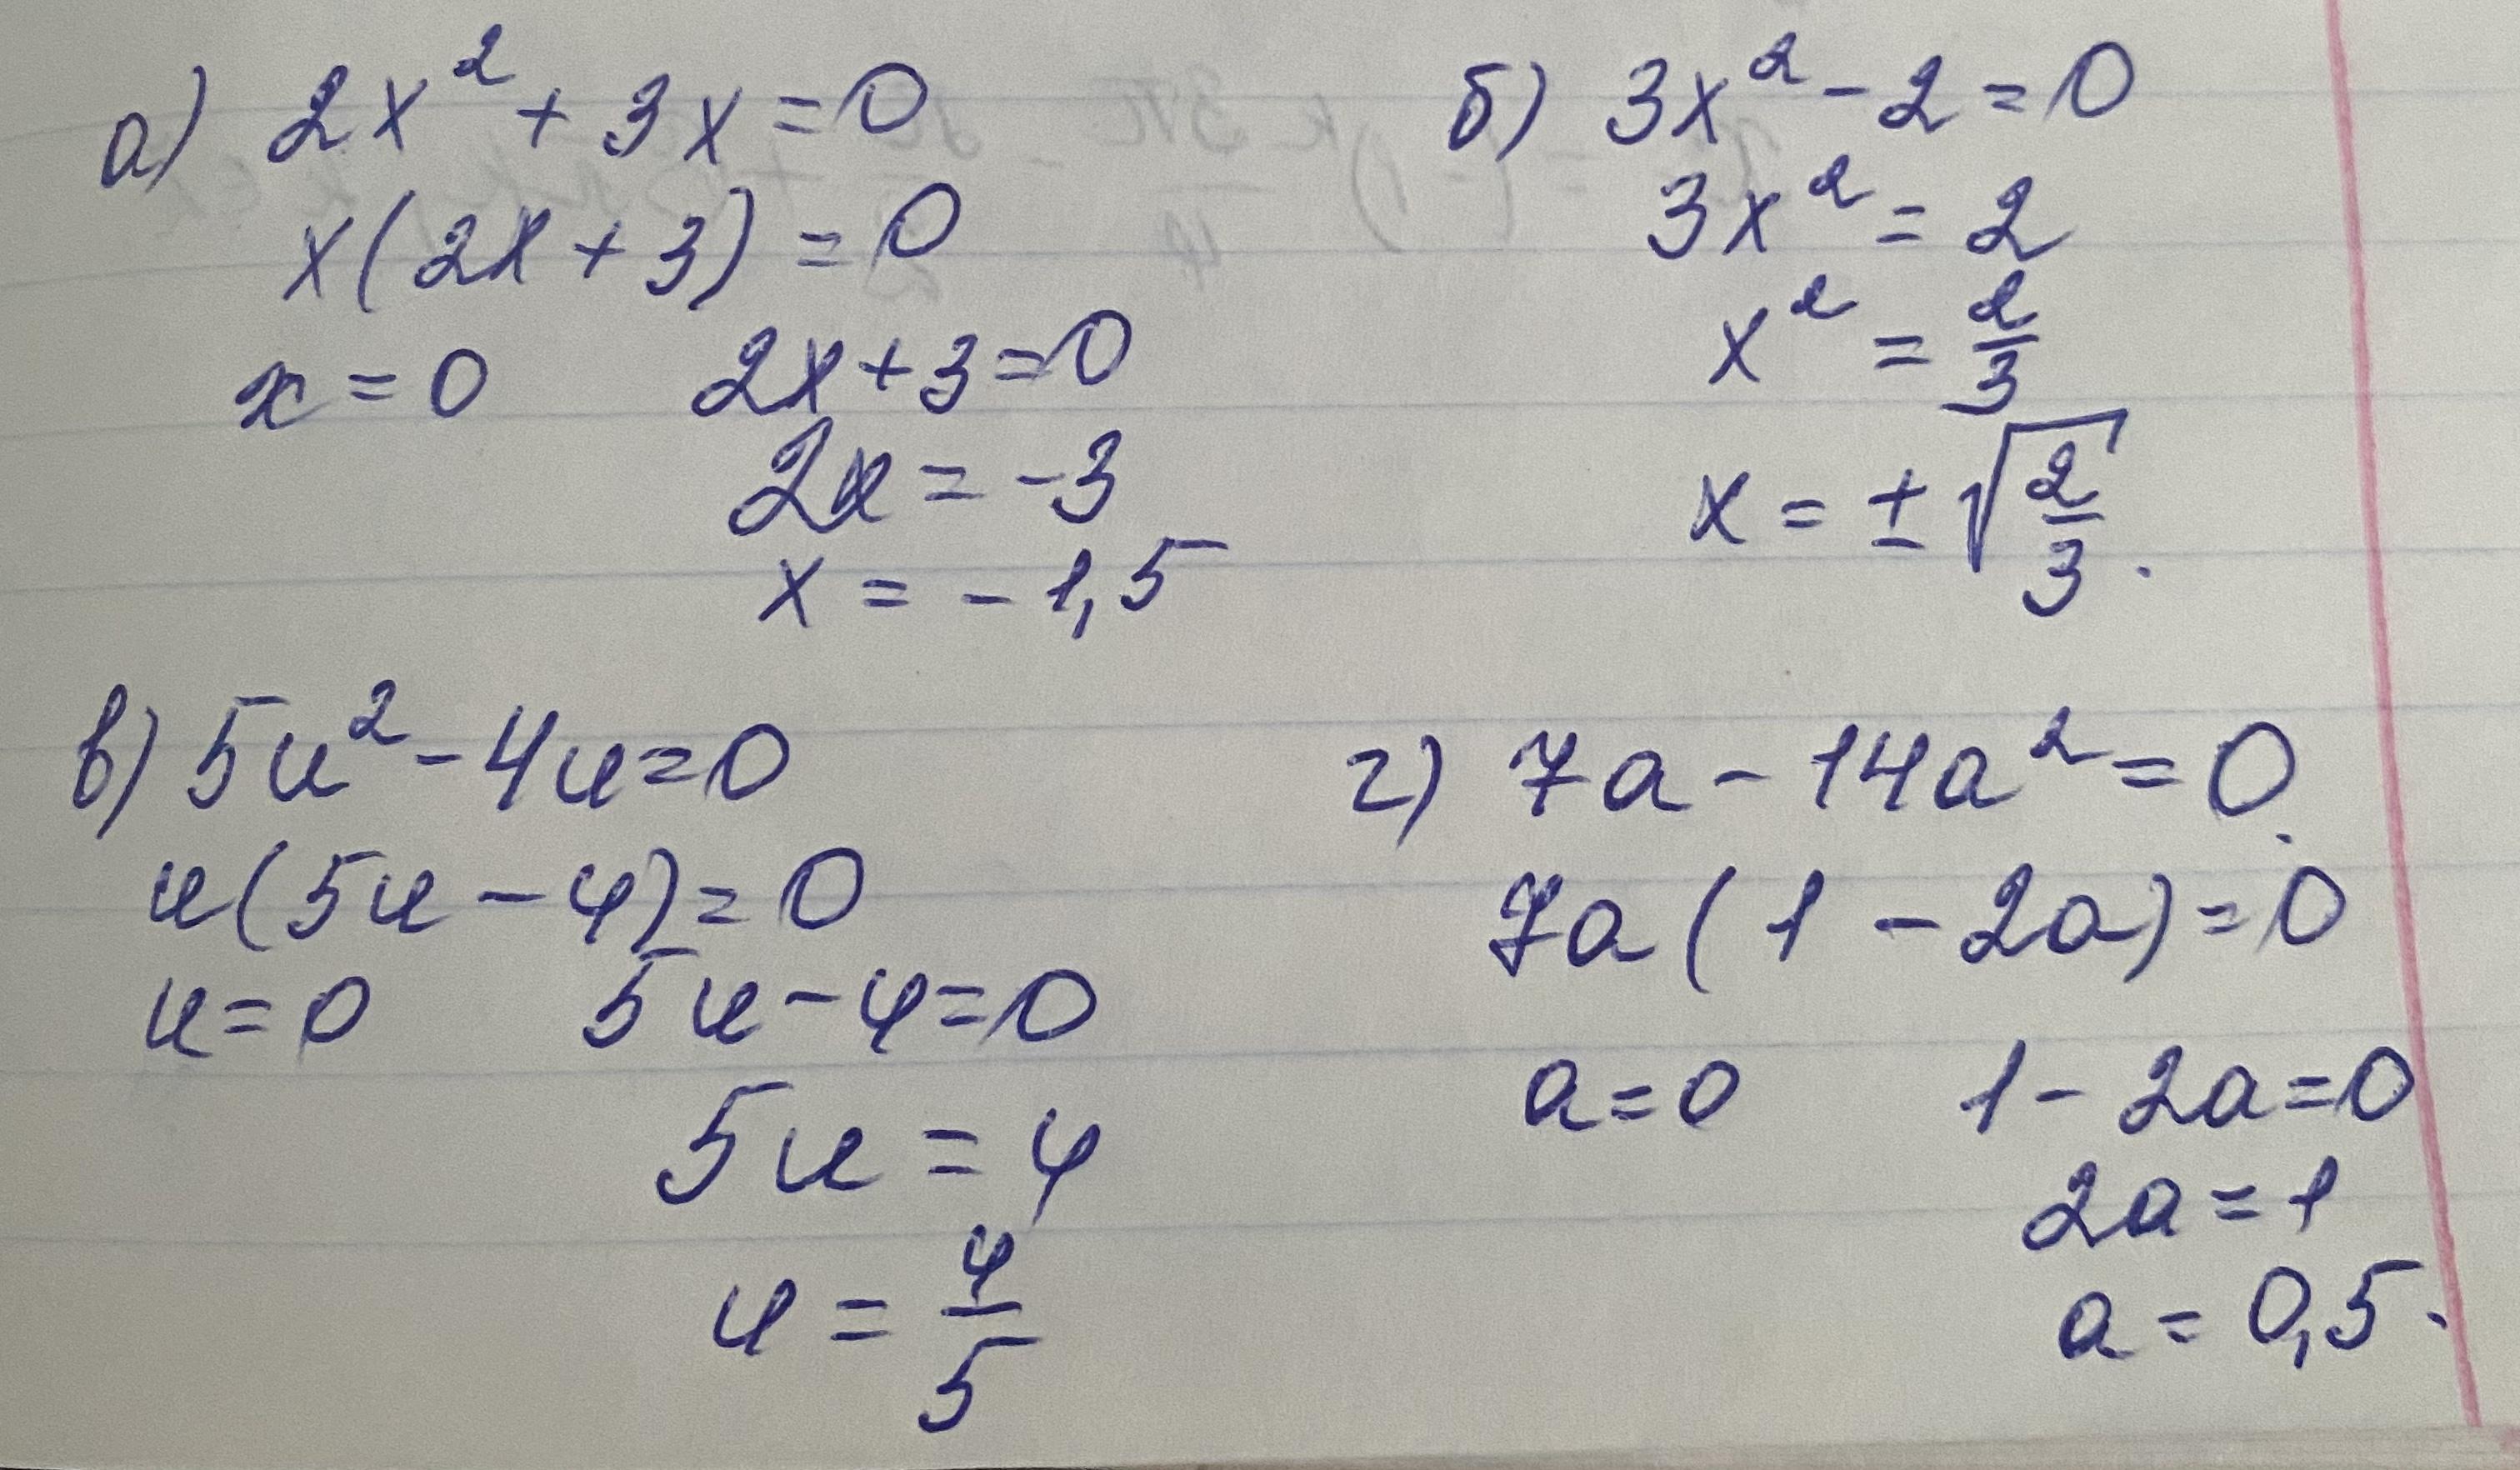 а) 2x² + 3x = 0
x(2x + 3) = 0
x = 0 2x + 3 = 0
2x = -3
x = - 1,5
б) 3x² - 2 = 0
3x² = 2
x² = 2/3
x = ± √(2/3).
в) 5u² - 4u = 0
u(5u - 4) = 0
u = 0 5u - 4 = 0
5u = 4
u = 4/5
г) 7a - 14a² = 0.
7a(1 - 2a) = 0
a = 0 1 - 2a = 0
2a = 1
a = 0,5.